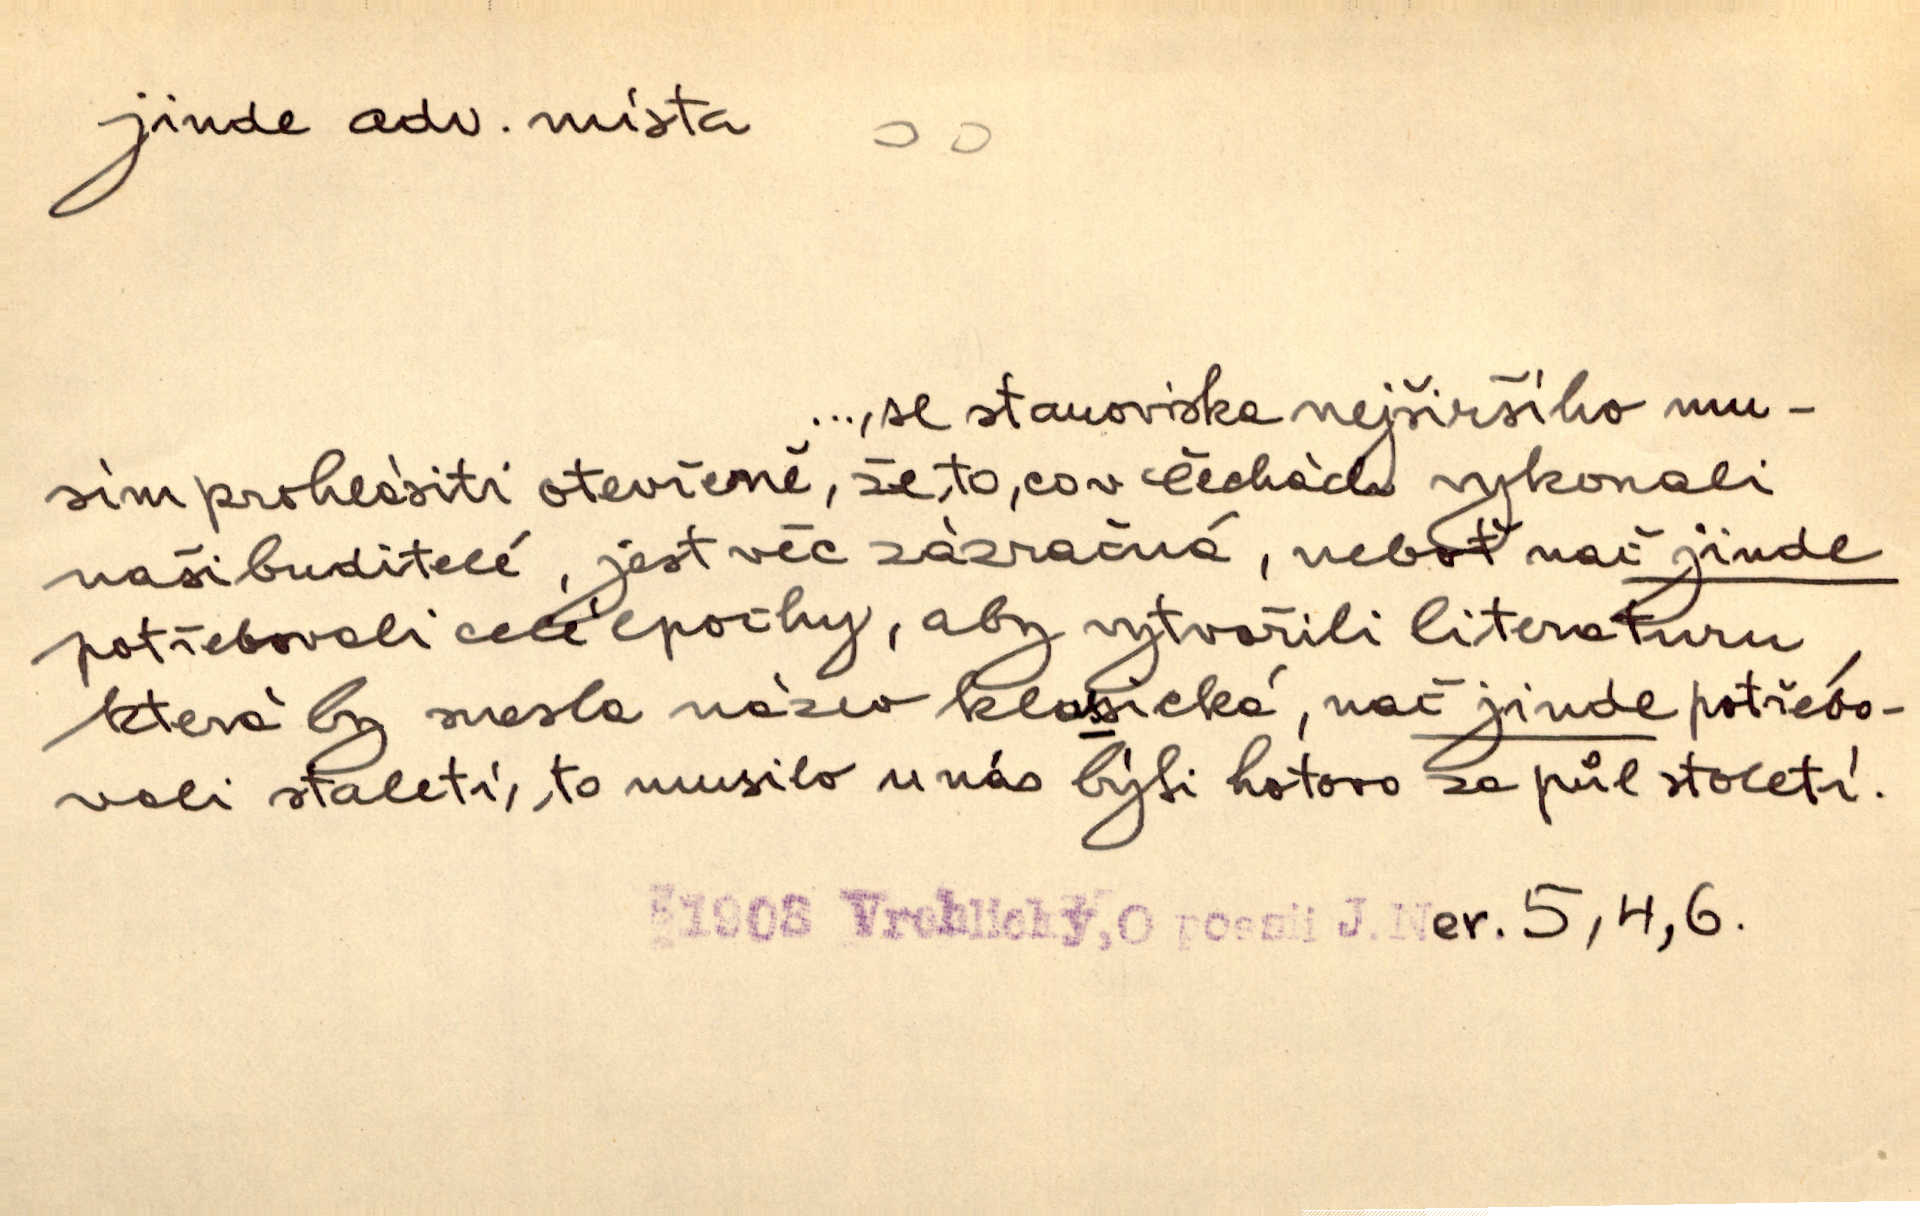 jinde adv. místa
..., se stanoviska nejširšího mu-
sím prohlásiti otevřeně, že to, co v Čechách vykonali
naši buditelé, jest věc zázračná, neboť nač jinde
potřebovali celé epochy, aby vytvořili literaturu,
která by snesla název klasická, nač jinde potřebo-
vali staletí, to musilo u nás býti hotovo za půl století.
1908 Vrchlický, O poesii J. Ner. 5,4,6.